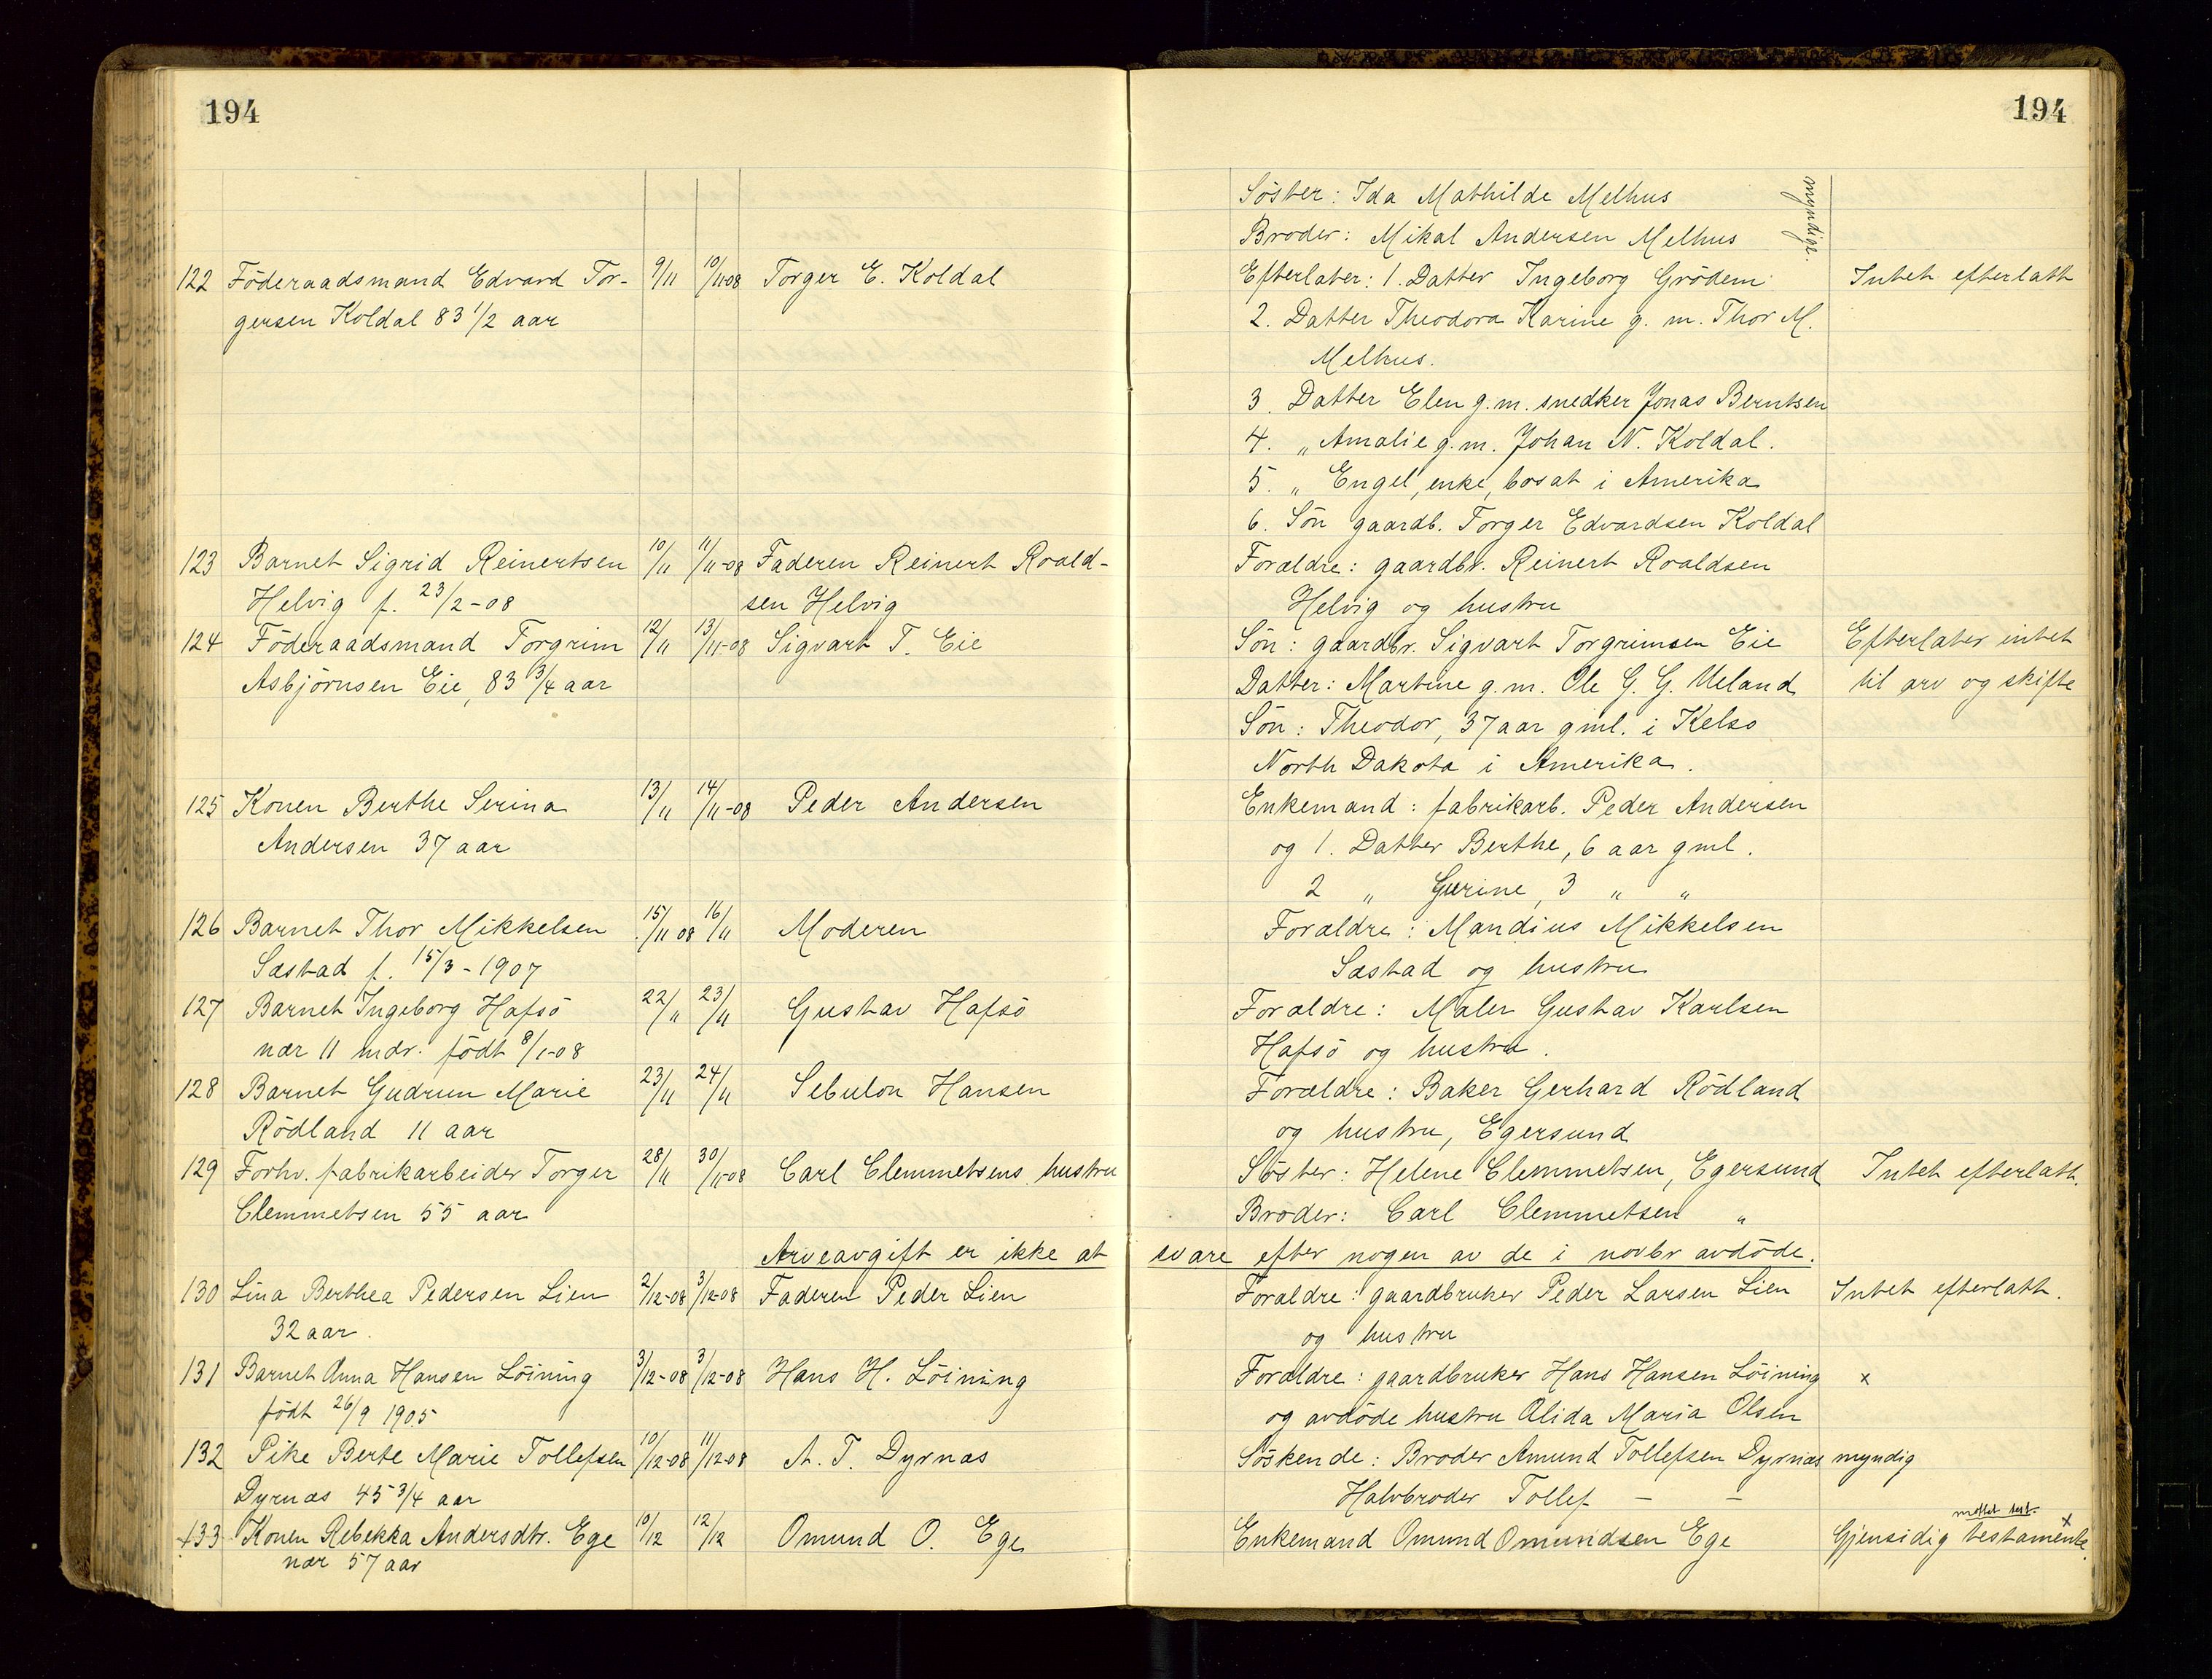 194
194
Søster: Ida Mathilde Melhus
Broder: Mikal Andersen Melhus
myndige.
122 Føderaadsmand Edvard Tor- 9/11 10/11-08 Torger E. Koldal Efterlater: 1. Datter Ingeborg Grødem Intet efterlatt
gersen Koldal 83 1/2 aar 2. Datter Theodora Karine g. m. Thor M.
Melhus.
3. Datter Elen g.m. snedker Jonas Berntsen
4. „ Amalie g.m. Johan N. Koldal.
5. „ Engel, enke, bosat i Amerika
6. Søn gaardb. Torger Edvardsen Koldal
123 Barnet Sigrid Reinertsen 10/11 11/11-08 Faderen Reinert Roald- Forældre: gaardbr. Reinert Roaldsen
Helvig f. 23/2-08 sen Helvig Helvig og hustru
124 Føderaadsmand Torgrim 12/11 13/11-08 Sigvart T. Eie Søn: gaardbr. Sigvart Torgrimsen Eie Efterlater intet
Asbjørnsen Eie, 83 3/4 aar Datter: Martine g.m. Ole G. G. Ueland til arv og skifte
Søn: Theodor, 37 aar gml. i Kelso
North Dakota i Amerika.
125 Konen Berthe Serina 13/11 14/11-08 Peder Andersen Enkemand: fabrikarb. Peder Andersen
Andersen 37 aar og 1. Datter Berthe, 6 aar gml.
2 „ Gurine, 3 „ „
126 Barnet Thor Mikkelsen 15/11 08 16/11 Moderen Forældre: Mandius Mikkelsen
Sæstad f. 15/3-1907 Sæstad og hustru
127 Barnet Ingeborg Hafsø 22/11 23/11 Gustav Hafsø Forældre: Maler Gustav Karlsen
nær 11 mdr. født 8/1-08 Hafsø og hustru.
128 Barnet Gudrun Marie 23/11 24/11 Sebulon Hansen Forældre: Baker Gerhard Rødland
Rødland 11 aar og hustru, Egersund
129 Forhv. fabrikarbeider Torger 28/11 30/11-08 Carl Clemmetsens hustru Søster: Helene Clemmetsen, Egersund Intet efterlatt.
Clemmetsen 55 aar Broder: Carl Clemmetsen „
Arveavgift er ikke at svare efter nogen av de i novbr avdøde.
130 Lina Berthea Pedersen Lien 2/12-08 3/12-08 Faderen Peder Lien Forældre: gaardbruker Peder Larsen Lien Intet efterlatt.
32 aar. og hustru
131 Barnet Anna Hansen Løining 3/12-08 3/12-08 Hans H. Løining Forældre: gaardbruker Hans Hansen Løining x
født 26/9 1905 og avdøde hustru Alida Maria Olsen
132 Pike Berte Marie Tollefsen 10/12-08 11/12-08 A. T. Dyrnæs Søskende: Broder Amund Tollefsen Dyrnæs myndig
Dyrnæs 45 3/4 aar Halvbroder Tollef — —
133 Konen Rebekka Andersdtr. Ege 10/12 12/12 Omund O. Ege Enkemand Omund Omundsen Ege Gjensidig testamente x
nær 57 aar